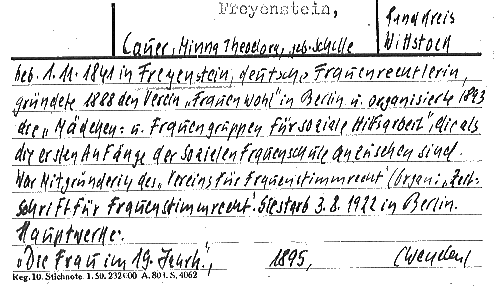 Freyenstein,
Landkreis
Cauer, Minna Theodora, geb. Schelle
Wittstock
Geb. 1.11.1841 in Freyenstein, deutsche Frauenrechtlerin,
gründete 1888 den Verein „Frauenwohl" in Berlin u. organisierte 1893
die „Mädchen- u. Frauengruppen für soziale Hilfsarbeit", die als
die ersten Anfänge der sozialen Frauenschule anzusehen sind.
War Mitgründerin des „Vereins für Frauenstimmrecht" (Organ: „Zeit-
schrift für Frauenstimmrecht". Sie starb 3.8.1922 in Berlin.
Hauptwerke:
„Die Frau im 19. Jahrh.", 1895,
Reg. 10. Stichnote 1. 50. 232000 A. 80 1. S. 4062